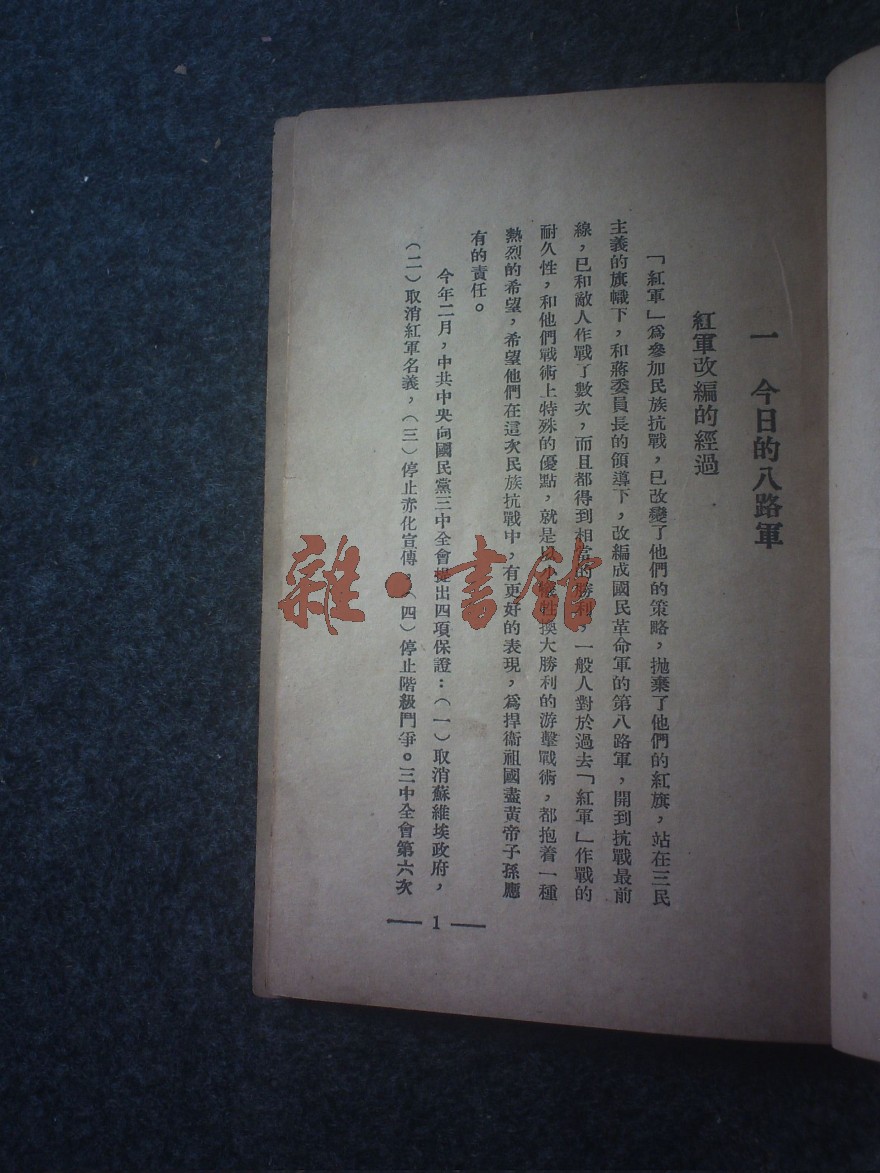 一　今日的八路軍
紅軍改編的經過
「紅軍」爲參加民族抗戰，已改變了他們的策略，拋棄了他們的紅旗，站在三民
主義的旗幟下，和蔣委員長的領導下，改編成國民革命軍的第八路軍，開到抗戰最前
線，已和敵人作戰了數次，而且都得到相當的勝利，一般人對於過去「紅軍」作戰的
耐久性，和他們戰術上特殊的優點，就是以小犧牲換大勝利的游擊戰術，都抱着一種
熱烈的希望，希望他們在這次民族抗戰中，有更好的表現，爲捍衞祖國盡黃帝子孫應
有的責任。
今年二月，中共中央向國民黨三中全會提出四項保證：（一）取消蘇維埃政府，
（二）取消紅軍名義，（三）停止赤化宣傳，（四）停止階級鬥爭。三中全會第六次
— 1 —
雜·書館